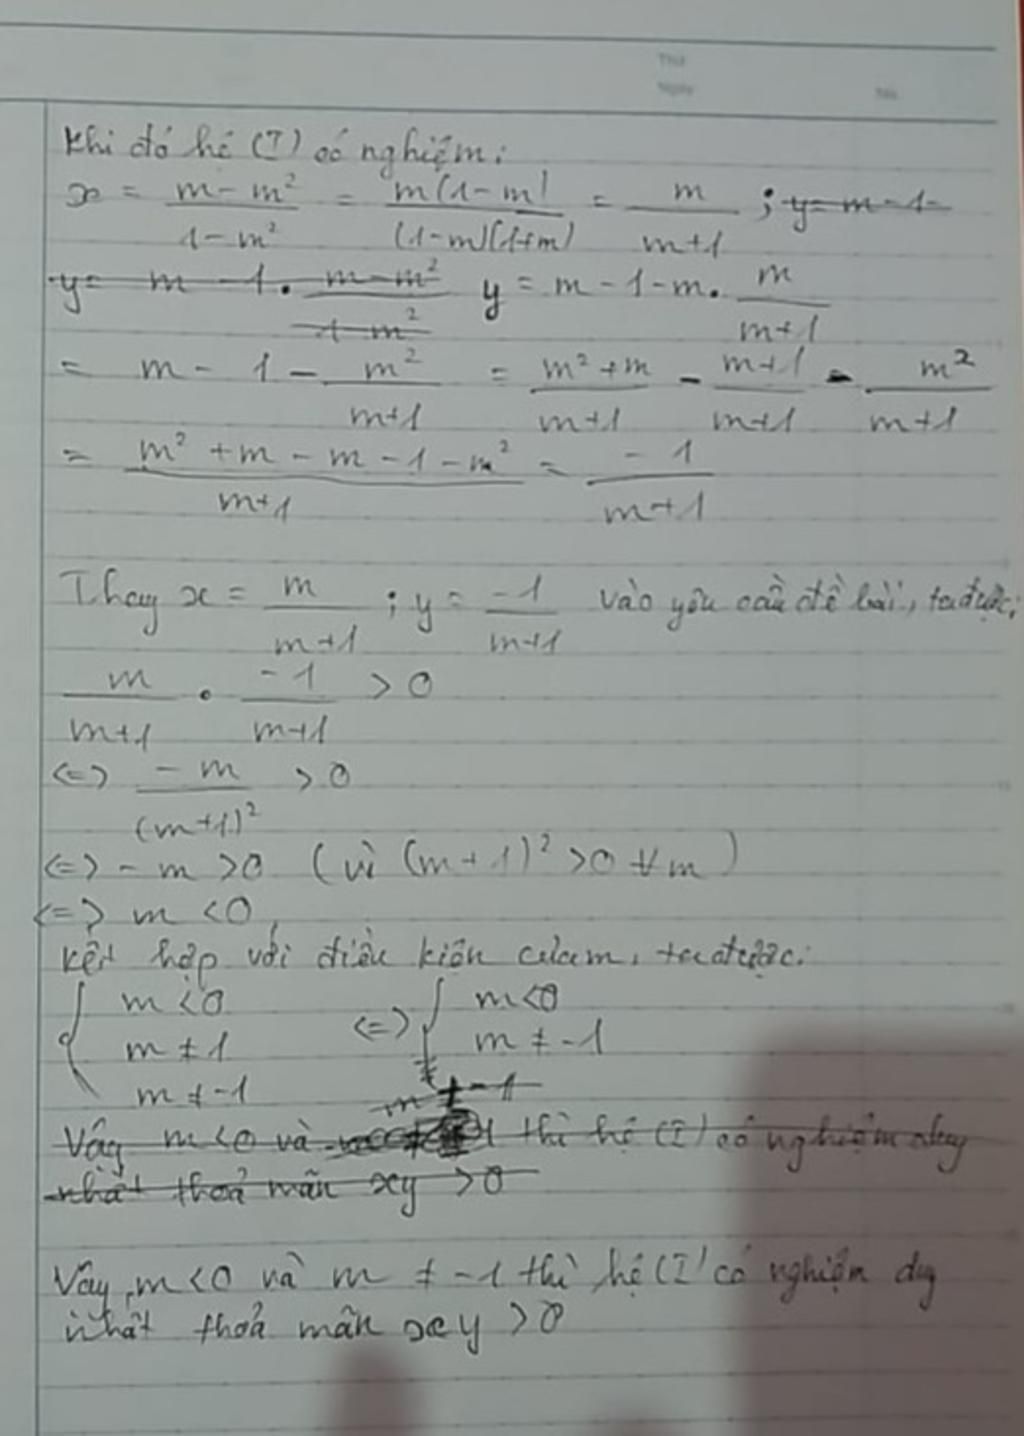 Thứ
Ngày
No.
Khi đó hệ (I) có nghiệm:
x = \frac{m - m^2}{1 - m^2} = \frac{m(1 - m)}{(1 - m)(1 + m)} = \frac{m}{m + 1} ; ~~y = m - 1 -~~
~~y = m - 1 . \frac{m - m^2}{1 - m^2}~~ y = m - 1 - m . \frac{m}{m + 1}
= m - 1 - \frac{m^2}{m + 1} = \frac{m^2 + m}{m + 1} - \frac{m + 1}{m + 1} - \frac{m^2}{m + 1}
= \frac{m^2 + m - m - 1 - m^2}{m + 1} = \frac{-1}{m + 1}
Thay x = \frac{m}{m + 1} ; y = \frac{-1}{m + 1} vào yêu cầu đề bài, ta được:
\frac{m}{m + 1} . \frac{-1}{m + 1} > 0
<=> \frac{-m}{(m + 1)^2} > 0
<=> - m > 0 (vì (m + 1)^2 > 0 ∀m)
<=> m < 0,
Kết hợp với điều kiện của m, ta được:
{ m < 0 <=> { m < 0
m ≠ 1 m ≠ -1
m ≠ -1 ~~m ≠ -1~~
~~Vậy m < 0 và thì hệ (I) có nghiệm duy~~
~~nhất thoả mãn xy > 0~~
Vậy, m < 0 và m ≠ -1 thì hệ (I) có nghiệm duy
nhất thoả mãn xy > 0